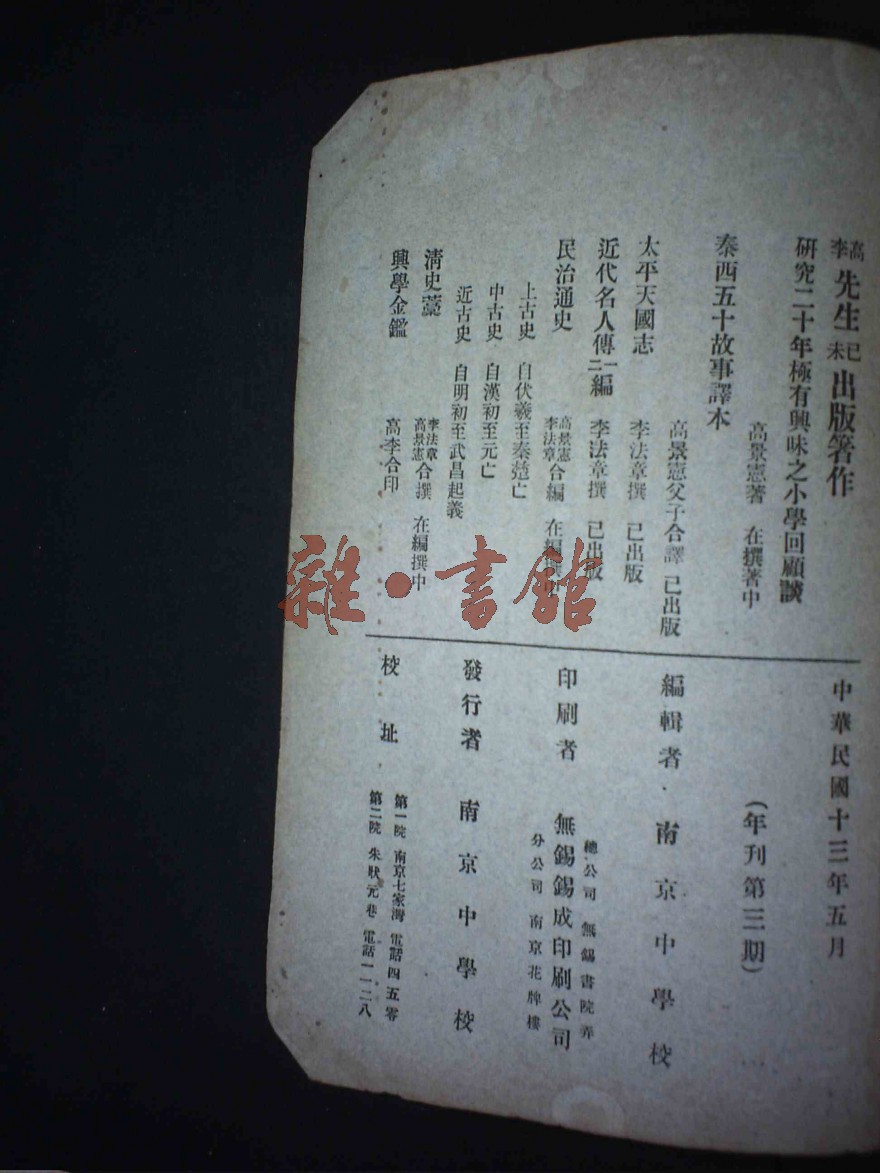 高李先生已未出版著作
研究二十年極有興味之小學回顧談
高景憲著 在撰著中
泰西五十故事譯本
高景憲父子合譯 已出版
太平天國志
李法章撰 已出版
近代名人傳一二編 李法章撰 已出版
民治通史 高景憲李法章合編 在編撰中
上古史 自伏羲至秦楚亡
中古史 自漢初至元亡
近古史 自明初至武昌起義
清史藁 李法章高景憲合撰 在編撰中
興學金鑑 高李合印
中華民國十三年五月
(年刊第三期)
編輯者 南京中學校
印刷者 無錫錫成印刷公司
總公司 無錫書院弄
分公司 南京花牌樓
發行者 南京中學校
校址
第一院 南京七家灣 電話四五零
第二院 朱狀元巷 電話一一二八
雜·書館